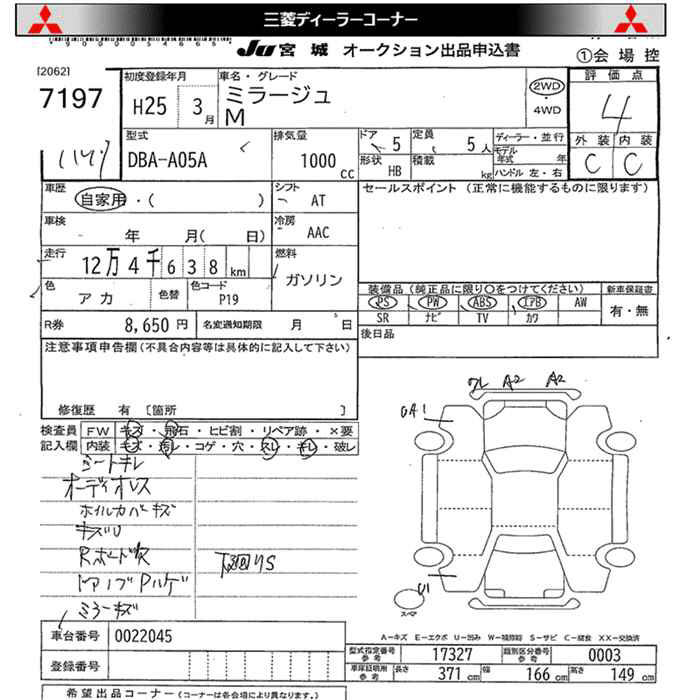 三菱ディーラーコーナー
JU 宮城 オークション出品申込書
①会場控
[2062]
7197
初度登録年月
H25 3月
車名・グレード
ミラージュ
M
2WD
・4WD
評価点
4
型式
DBA-A05A
排気量
1000 cc
ドア 5
形状 HB
定員 5人
積載 kg
ディーラー・並行
モデル年式 年
ハンドル 左・右
外装 内装
C C
車歴
自家用・( )
シフト AT
セールスポイント (正常に機能するものに限ります)
車検
年 月( 日)
冷房 AAC
走行
12万4千638km
燃料
ガソリン
色
アカ
色替
色コード
P19
装備品 (純正品に限り○をつけてください)
新車保証書
PS PW ABS エアB AW
SR ナビ TV カワ
有・無
R券 8,650円
名変通知期限 月 日
後日品
注意事項申告欄 (不具合内容等は具体的に記入して下さい)
修復歴 有 [箇所 ]
検査員 FW キズ・飛石・ヒビ割・リペア跡・×要
記入欄 内装 キズ・汚レ・コゲ・穴・スレ・キレ・破レ
シートキレ
オーディオレス
ホイルカバーキズ
キズU
Rボード欠
ミラーキズ
下回りS
ワレ A2 A2
U1
スペア
A-キズ E-エクボ U-凹み W-補修跡 S-サビ C-腐食 XX-交換済
車台番号 0022045
登録番号
型式指定番号 参考 17327
類別区分番号 参考 0003
車庫証明用 参考 長さ 371cm 幅 166cm 高さ 149cm
希望出品コーナー (コーナーは各会場により異なります。)